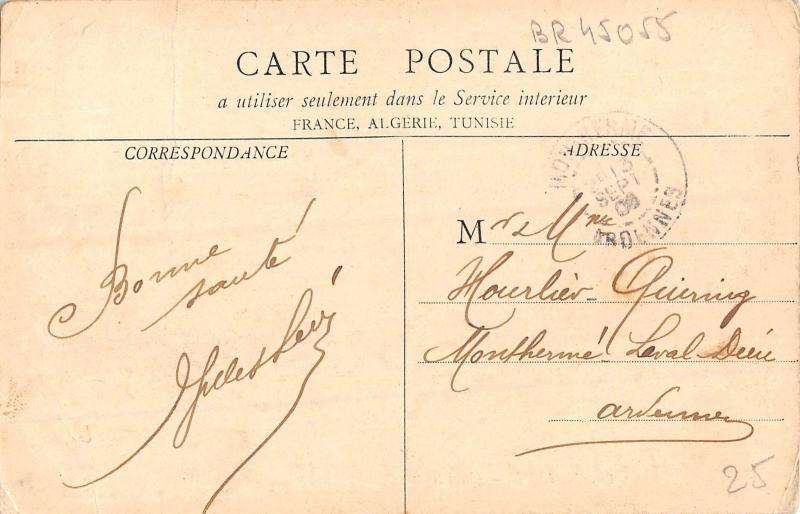 BR 45055
CARTE POSTALE
a utiliser seulement dans le Service interieur
FRANCE, ALGÉRIE, TUNISIE
CORRESPONDANCE
Bonne
santé
ADRESSE
MONTHERMÉ
SEPT
ARDENNES
Mr & Mme
Hourlier-Guering
Monthermé Laval-Dieu
Ardennes
25